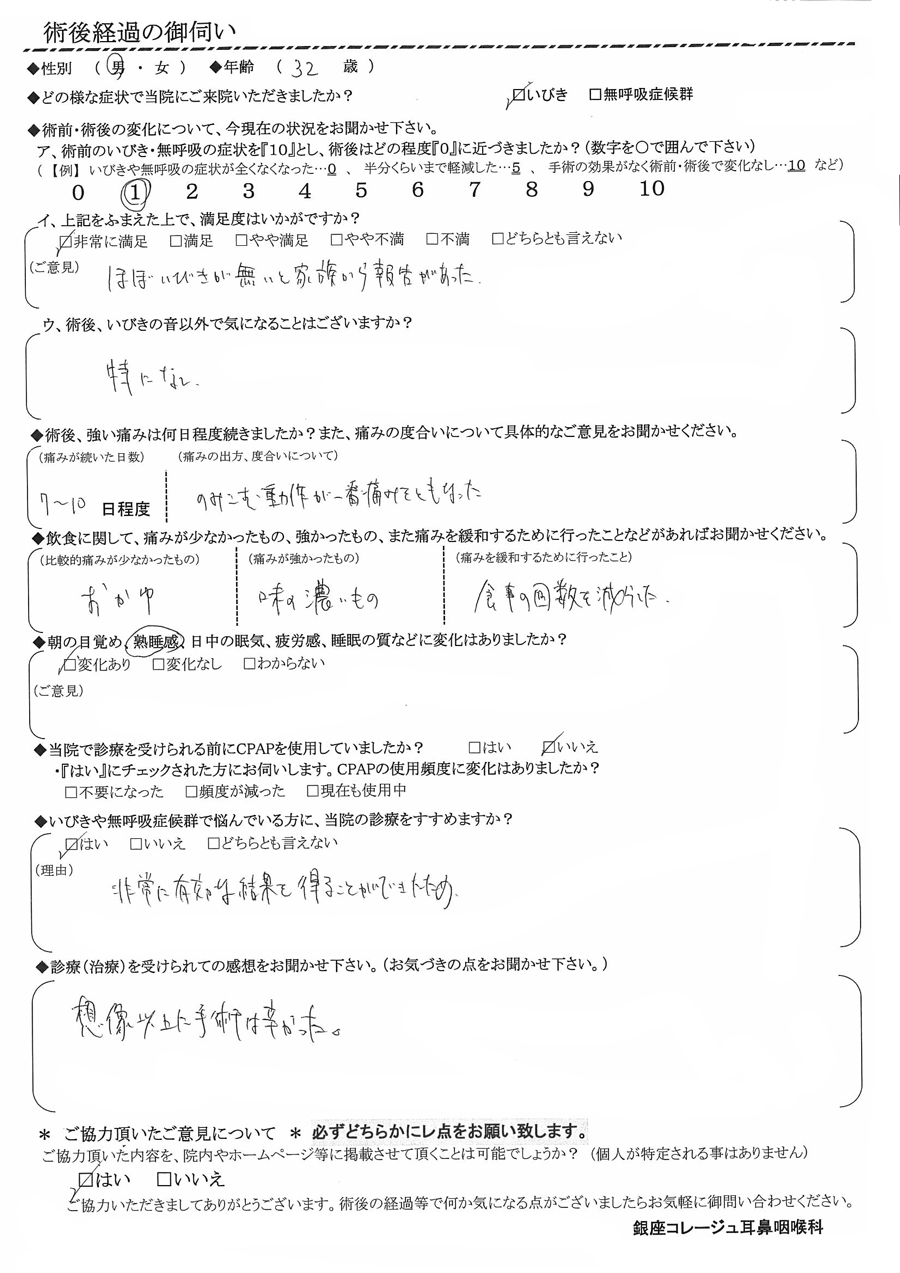 術後経過の御伺い
◆性別 ( 男 ・ 女 ) ◆年齢 ( 32 歳 )
◆どの様な症状で当院にご来院いただきましたか? ☑いびき □無呼吸症候群
◆術前・術後の変化について、今現在の状況をお聞かせ下さい。
ア、術前のいびき・無呼吸の症状を『10』とし、術後はどの程度『0』に近づきましたか?(数字を〇で囲んで下さい)
(【例】いびきや無呼吸の症状が全くなくなった…0 、 半分くらいまで軽減した…5 、 手術の効果がなく術前・術後で変化なし…10 など)
0 1 2 3 4 5 6 7 8 9 10
イ、上記をふまえた上で、満足度はいかがですか?
☑非常に満足 □満足 □やや満足 □やや不満 □不満 □どちらとも言えない
(ご意見)
ほぼいびきが無いと家族から報告があった.
ウ、術後、いびきの音以外で気になることはございますか?
特になし.
◆術後、強い痛みは何日程度続きましたか?また、痛みの度合いについて具体的なご意見をお聞かせください。
(痛みが続いた日数) (痛みの出方、度合いについて)
7〜10 日程度 のみこむ動作が一番痛みをともなった
◆飲食に関して、痛みが少なかったもの、強かったもの、また痛みを緩和するために行ったことなどがあればお聞かせください。
(比較的痛みが少なかったもの) (痛みが強かったもの) (痛みを緩和するために行ったこと)
おかゆ 味の濃いもの 食事の回数を減らした.
◆朝の目覚め、熟睡感、日中の眠気、疲労感、睡眠の質などに変化はありましたか?
☑変化あり □変化なし □わからない
(ご意見)
◆当院で診療を受けられる前にCPAPを使用していましたか? □はい ☑いいえ
・『はい』にチェックされた方にお伺いします。CPAPの使用頻度に変化はありましたか?
□不要になった □頻度が減った □現在も使用中
◆いびきや無呼吸症候群で悩んでいる方に、当院の診療をすすめますか?
☑はい □いいえ □どちらとも言えない
(理由)
非常に有効な結果を得ることができたため.
◆診療(治療)を受けられての感想をお聞かせ下さい。(お気づきの点をお聞かせ下さい。)
想像以上に手術は辛かった。
* ご協力頂いたご意見について * 必ずどちらかにレ点をお願い致します。
ご協力頂いた内容を、院内やホームページ等に掲載させて頂くことは可能でしょうか? (個人が特定される事はありません)
☑はい □いいえ
ご協力いただきましてありがとうございます。術後の経過等で何か気になる点がございましたらお気軽に御問い合わせください。
銀座コレージュ耳鼻咽喉科